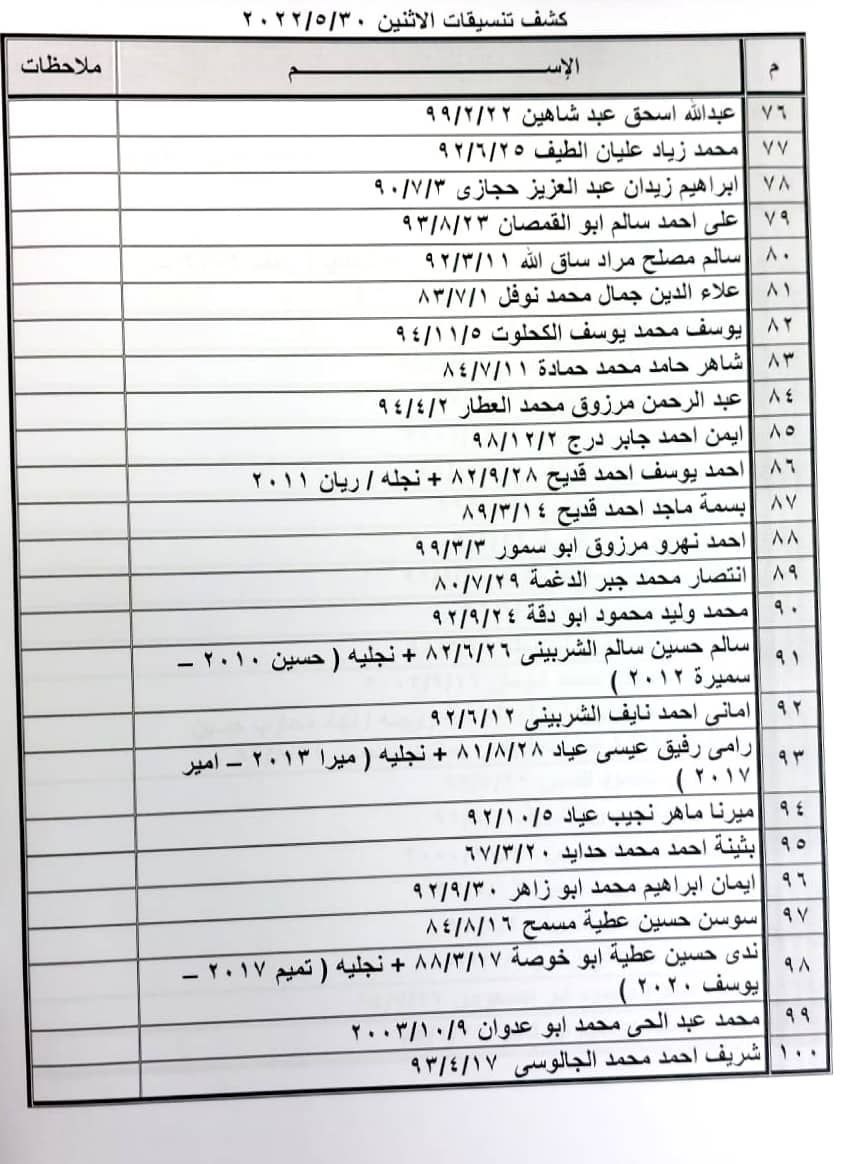 كشف تنسيقات الاثنين ٢٠٢٢/٥/٣٠
م الإســـــــــــــــم ملاحظات
٧٦ عبدالله اسحق عبد شاهين ٩٩/٢/٢٢
٧٧ محمد زياد عليان الطيف ٩٢/٦/٢٥
٧٨ ابراهيم زيدان عبد العزيز حجازى ٩٠/٧/٣
٧٩ على احمد سالم ابو القمصان ٩٣/٨/٢٣
٨٠ سالم مصلح مراد ساق الله ٩٢/٣/١١
٨١ علاء الدين جمال محمد نوفل ٨٣/٧/١
٨٢ يوسف محمد يوسف الكحلوت ٩٤/١١/٥
٨٣ شاهر حامد محمد حمادة ٨٤/٧/١١
٨٤ عبد الرحمن مرزوق محمد العطار ٩٤/٤/٢
٨٥ ايمن احمد جابر درج ٩٨/١٢/٢
٨٦ احمد يوسف احمد قديح ٨٢/٩/٢٨ + نجله / ريان ٢٠١١
٨٧ بسمة ماجد احمد قديح ٨٩/٣/١٤
٨٨ احمد نهرو مرزوق ابو سمور ٩٩/٣/٣
٨٩ انتصار محمد جبر الدغمة ٨٠/٧/٢٩
٩٠ محمد وليد محمود ابو دقة ٩٢/٩/٢٤
٩١ سالم حسين سالم الشربينى ٨٢/٦/٢٦ + نجليه ( حسين ٢٠١٠ –
سميرة ٢٠١٢ )
٩٢ امانى احمد نايف الشربينى ٩٢/٦/١٢
٩٣ رامى رفيق عيسى عياد ٨١/٨/٢٨ + نجليه ( ميرا ٢٠١٣ – امير
٢٠١٧ )
٩٤ ميرنا ماهر نجيب عياد ٩٢/١٠/٥
٩٥ بثينة احمد محمد حدايد ٦٧/٣/٢٠
٩٦ ايمان ابراهيم محمد ابو زاهر ٩٢/٩/٣٠
٩٧ سوسن حسين عطية مسمح ٨٤/٨/١٦
٩٨ ندى حسين عطية ابو خوصة ٨٨/٣/١٧ + نجليه ( تميم ٢٠١٧ –
يوسف ٢٠٢٠ )
٩٩ محمد عبد الحى محمد ابو عدوان ٢٠٠٣/١٠/٩
١٠٠ شريف احمد محمد الجالوسى ٩٣/٤/١٧